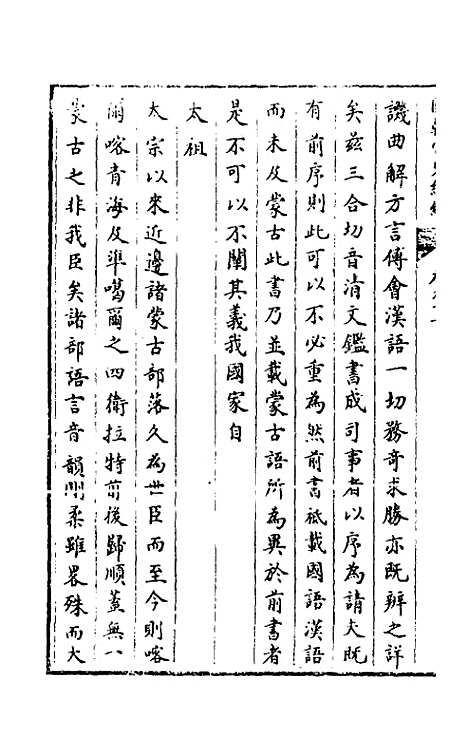 譏曲解方言傅會漢語一切務奇求勝亦既辨之詳
矣兹三合切音清文鑑書成司事者以序為請夫既
有前序則此可以不必重為然前書祇載國語漢語
而未及蒙古此書乃並載蒙古語所為異於前書者
是不可以不闡其義我國家自
太祖
太宗以來近邊諸蒙古部落久為世臣而至今則喀
爾喀青海及準噶爾之四衛拉特前後歸順蓋無一
蒙古之非我臣矣諸部語言音韻剛柔雖畧殊而大